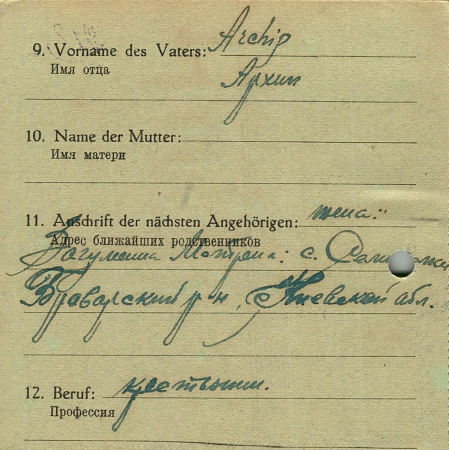 9. Vorname des Vaters: Archip
Имя отца
Архип
10. Name der Mutter:
Имя матери
11. Anschrift der nächsten Angehörigen: жена:
Адрес ближайших родственников
Матрена: с.
Броварский р-н, Киевской обл.
12. Beruf: крестьянин.
Профессия